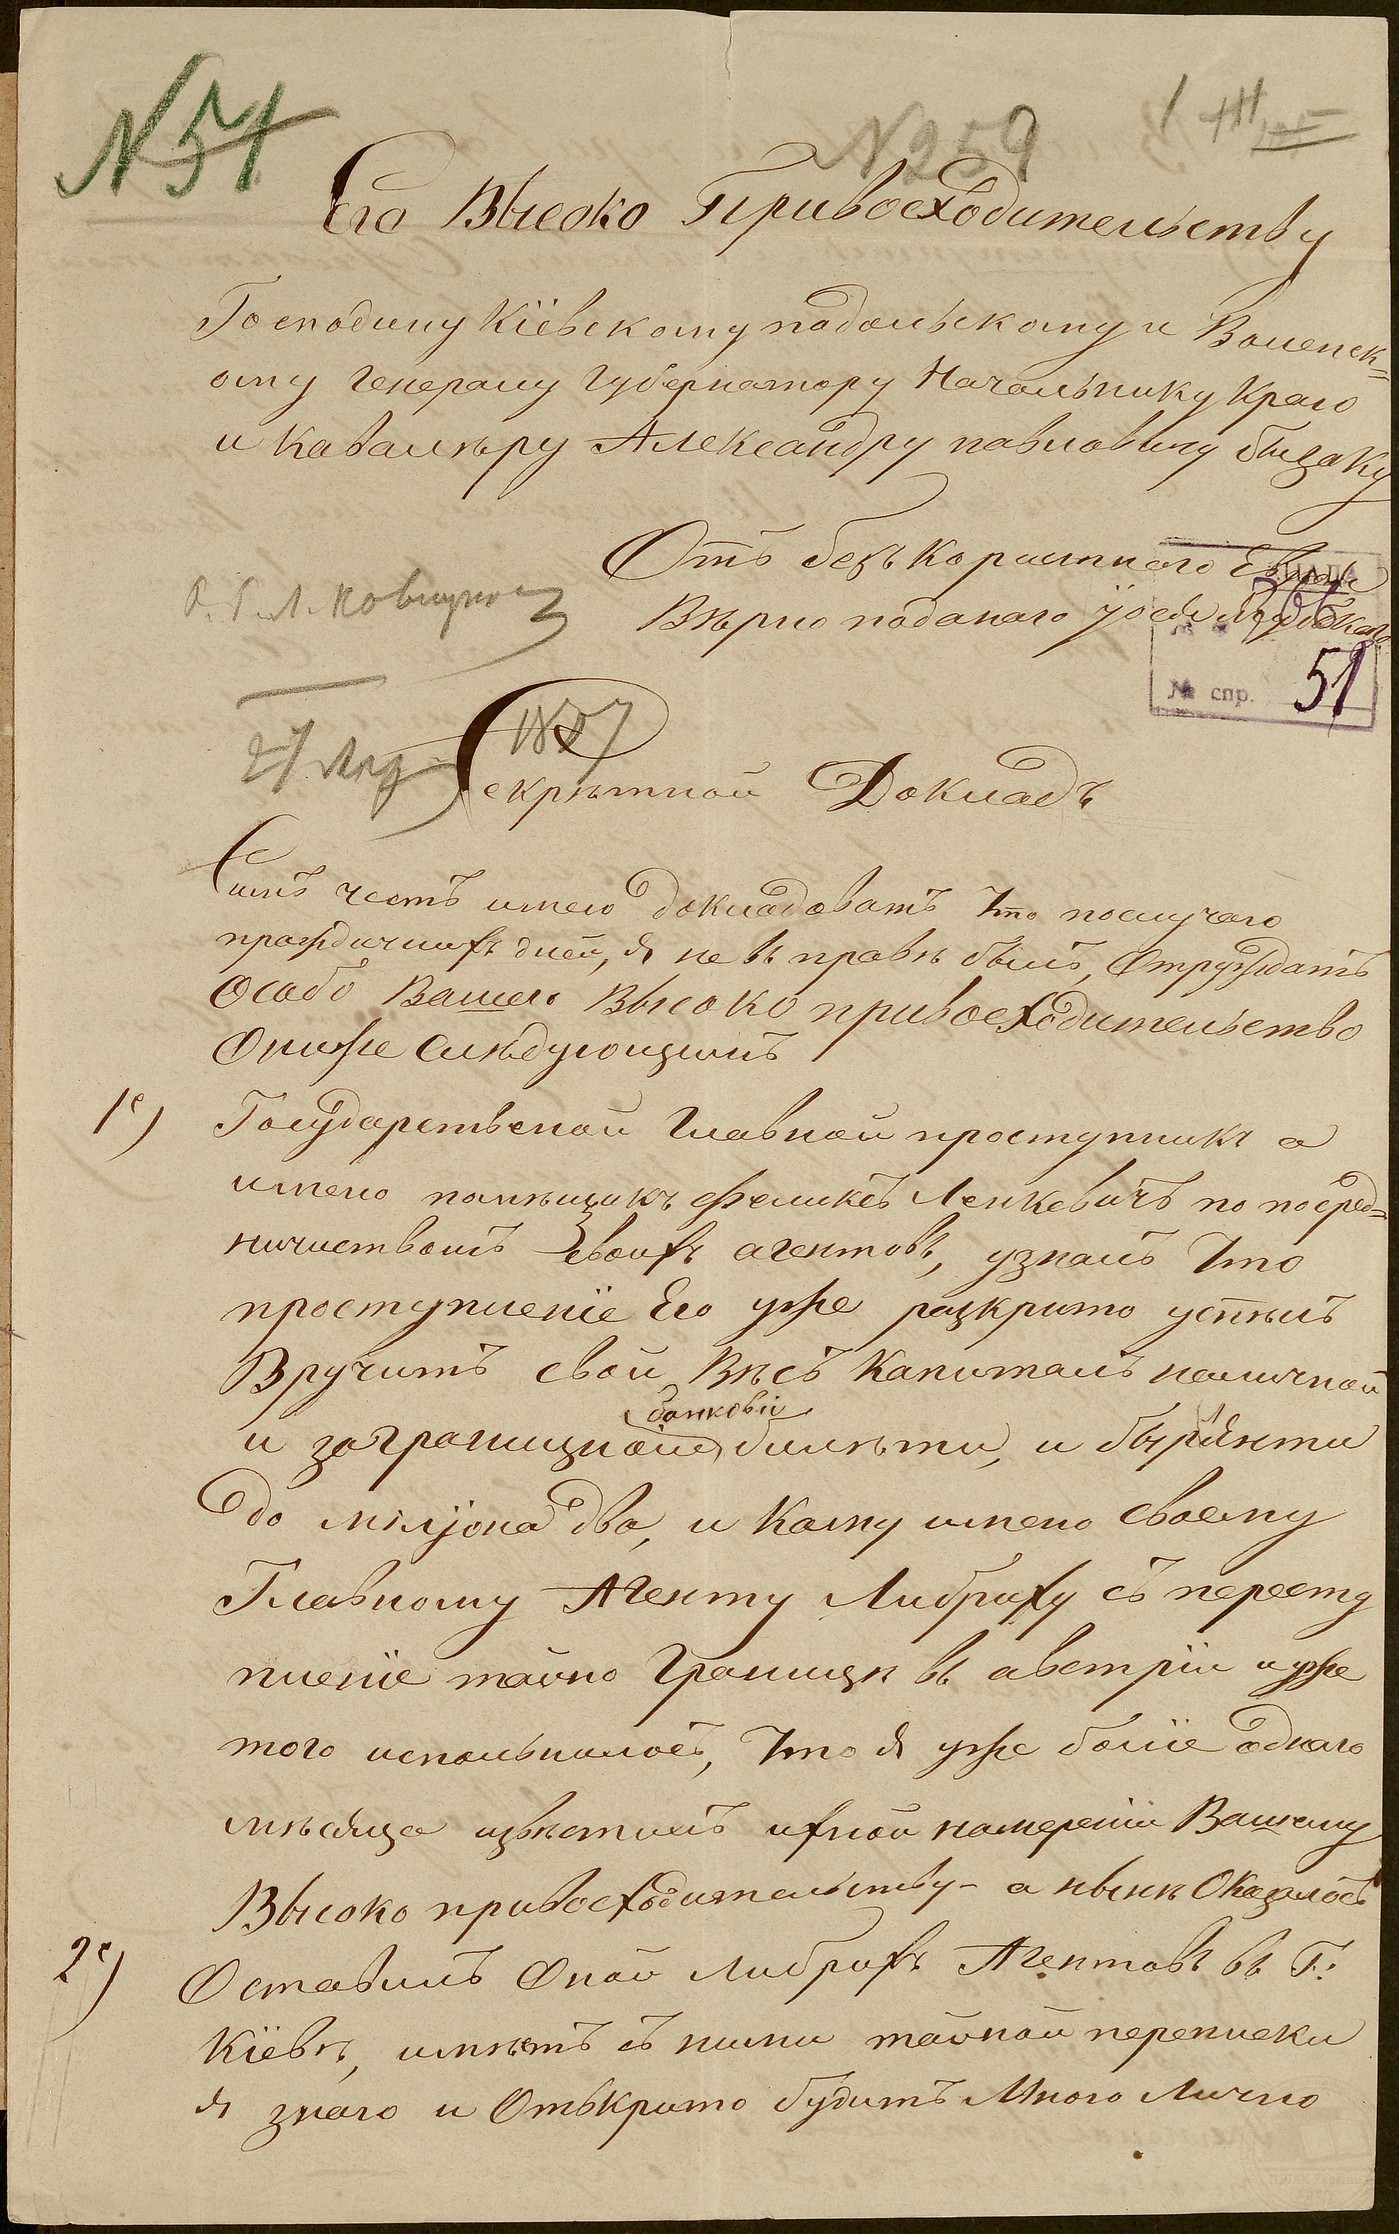 N 51
N 259
Его Высоко Привосходительству
Господину Кіевскому подольскому и Воленск=
ому Генералу Губернатору Начальнику Краю
и Кавалѣру Александру павловичу бызаку
Отъ безъ Кориистного
Вѣрно поданаго
№ спр. 51
27 Апр 1867
Секрѣтной Докладъ
Симъ честъ имею докладоватъ что послучаю
праждничихъ дней, я не въ правѣ былъ, Отруждатъ
Особо Вашего Высоко привосходительство
Ониже слѣдующимъ
1е) Государственой Главной проступникъ а
имено помѣщикъ феликсъ Ленкевичъ по посред=
ничиствомъ своихъ агентовъ, узналъ что
проступленіе Его уже раскрито успѣлъ
Вручитъ свой Вѣсъ Капиталъ наличной
банковіи
и заграницной билѣти, и
до міліона два, и Кому имено своему
Главному Агенту Либриху съ пересту
пленіе тайно Граници въ австріи и уже
того испольнилосъ, что я уже боліе одного
мѣсяца извѣстилъ ихной намереніи Вашему
Высоко привосходительству - а нынѣ Оказалосъ
2е) Оставилъ Оной Либрихъ Агентовъ въ Г:
Кіевѣ, имѣетъ съ ними тайной переписки
я знаю и Отькрито будитъ Много Лично